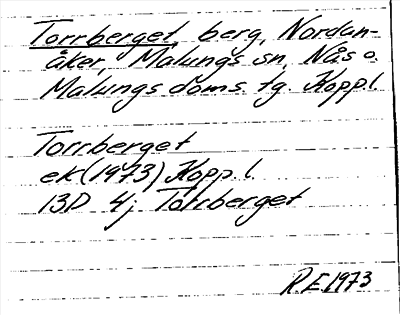 Torrberget, berg, Nordan-
åker, Malungs sn, Nås o.
Malungs doms. tg. Kopp.l.
Torrberget
ek(1973) Kopp.l.
13D 4j Torrberget
R.E.1973